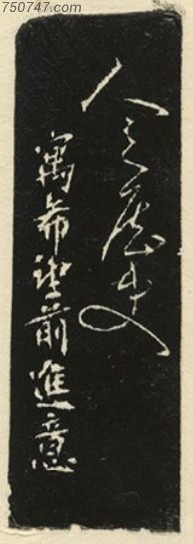 750747.com
人之歷史
寓希望前進意